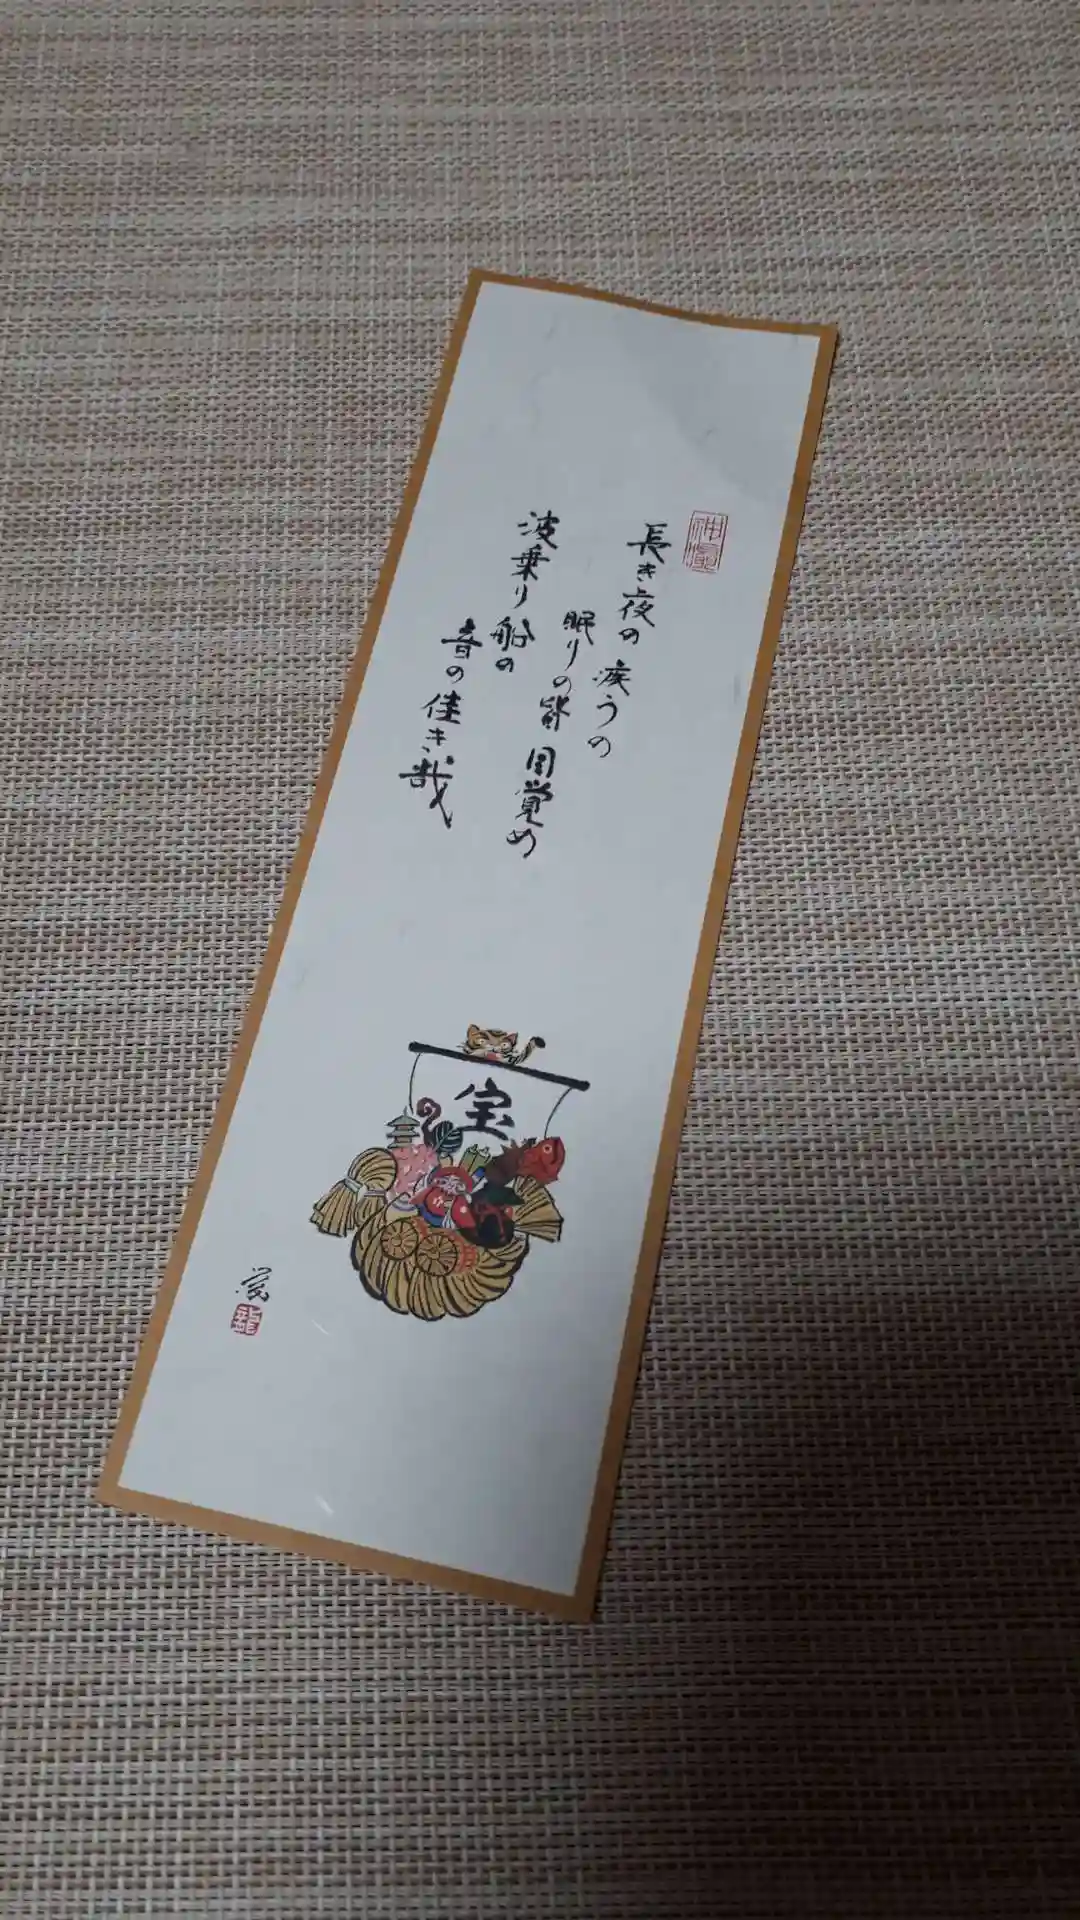 長き夜の 疾うの
眠りの皆 目覚め
波乗り船の
音の佳き哉
宝
龍